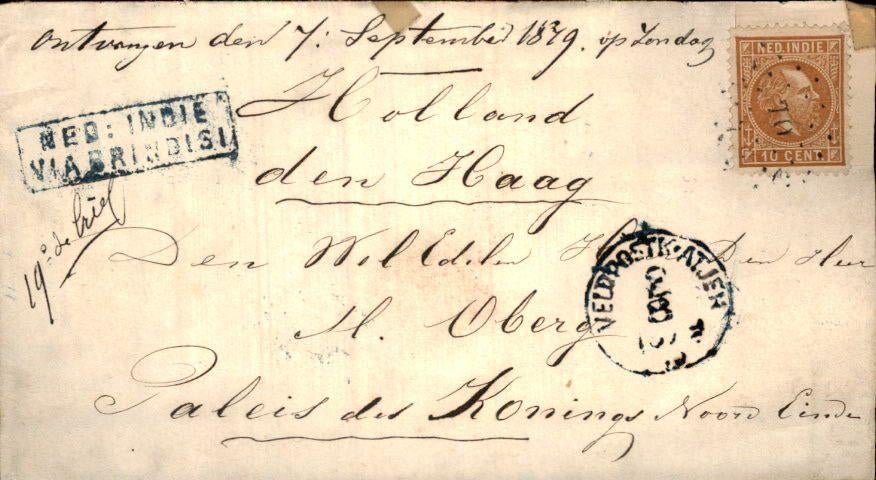 ontvangen den 7: September 1879. op Zondag
NED. INDIE
70
10 CENT
NED: INDIE
VIA BRINDISI
Holland
den Haag
19e de brief
Den Wel Edelen Den Heer
VELDPOSTK. ATJEH
M. Oberg
Paleis des Konings Noord Einde